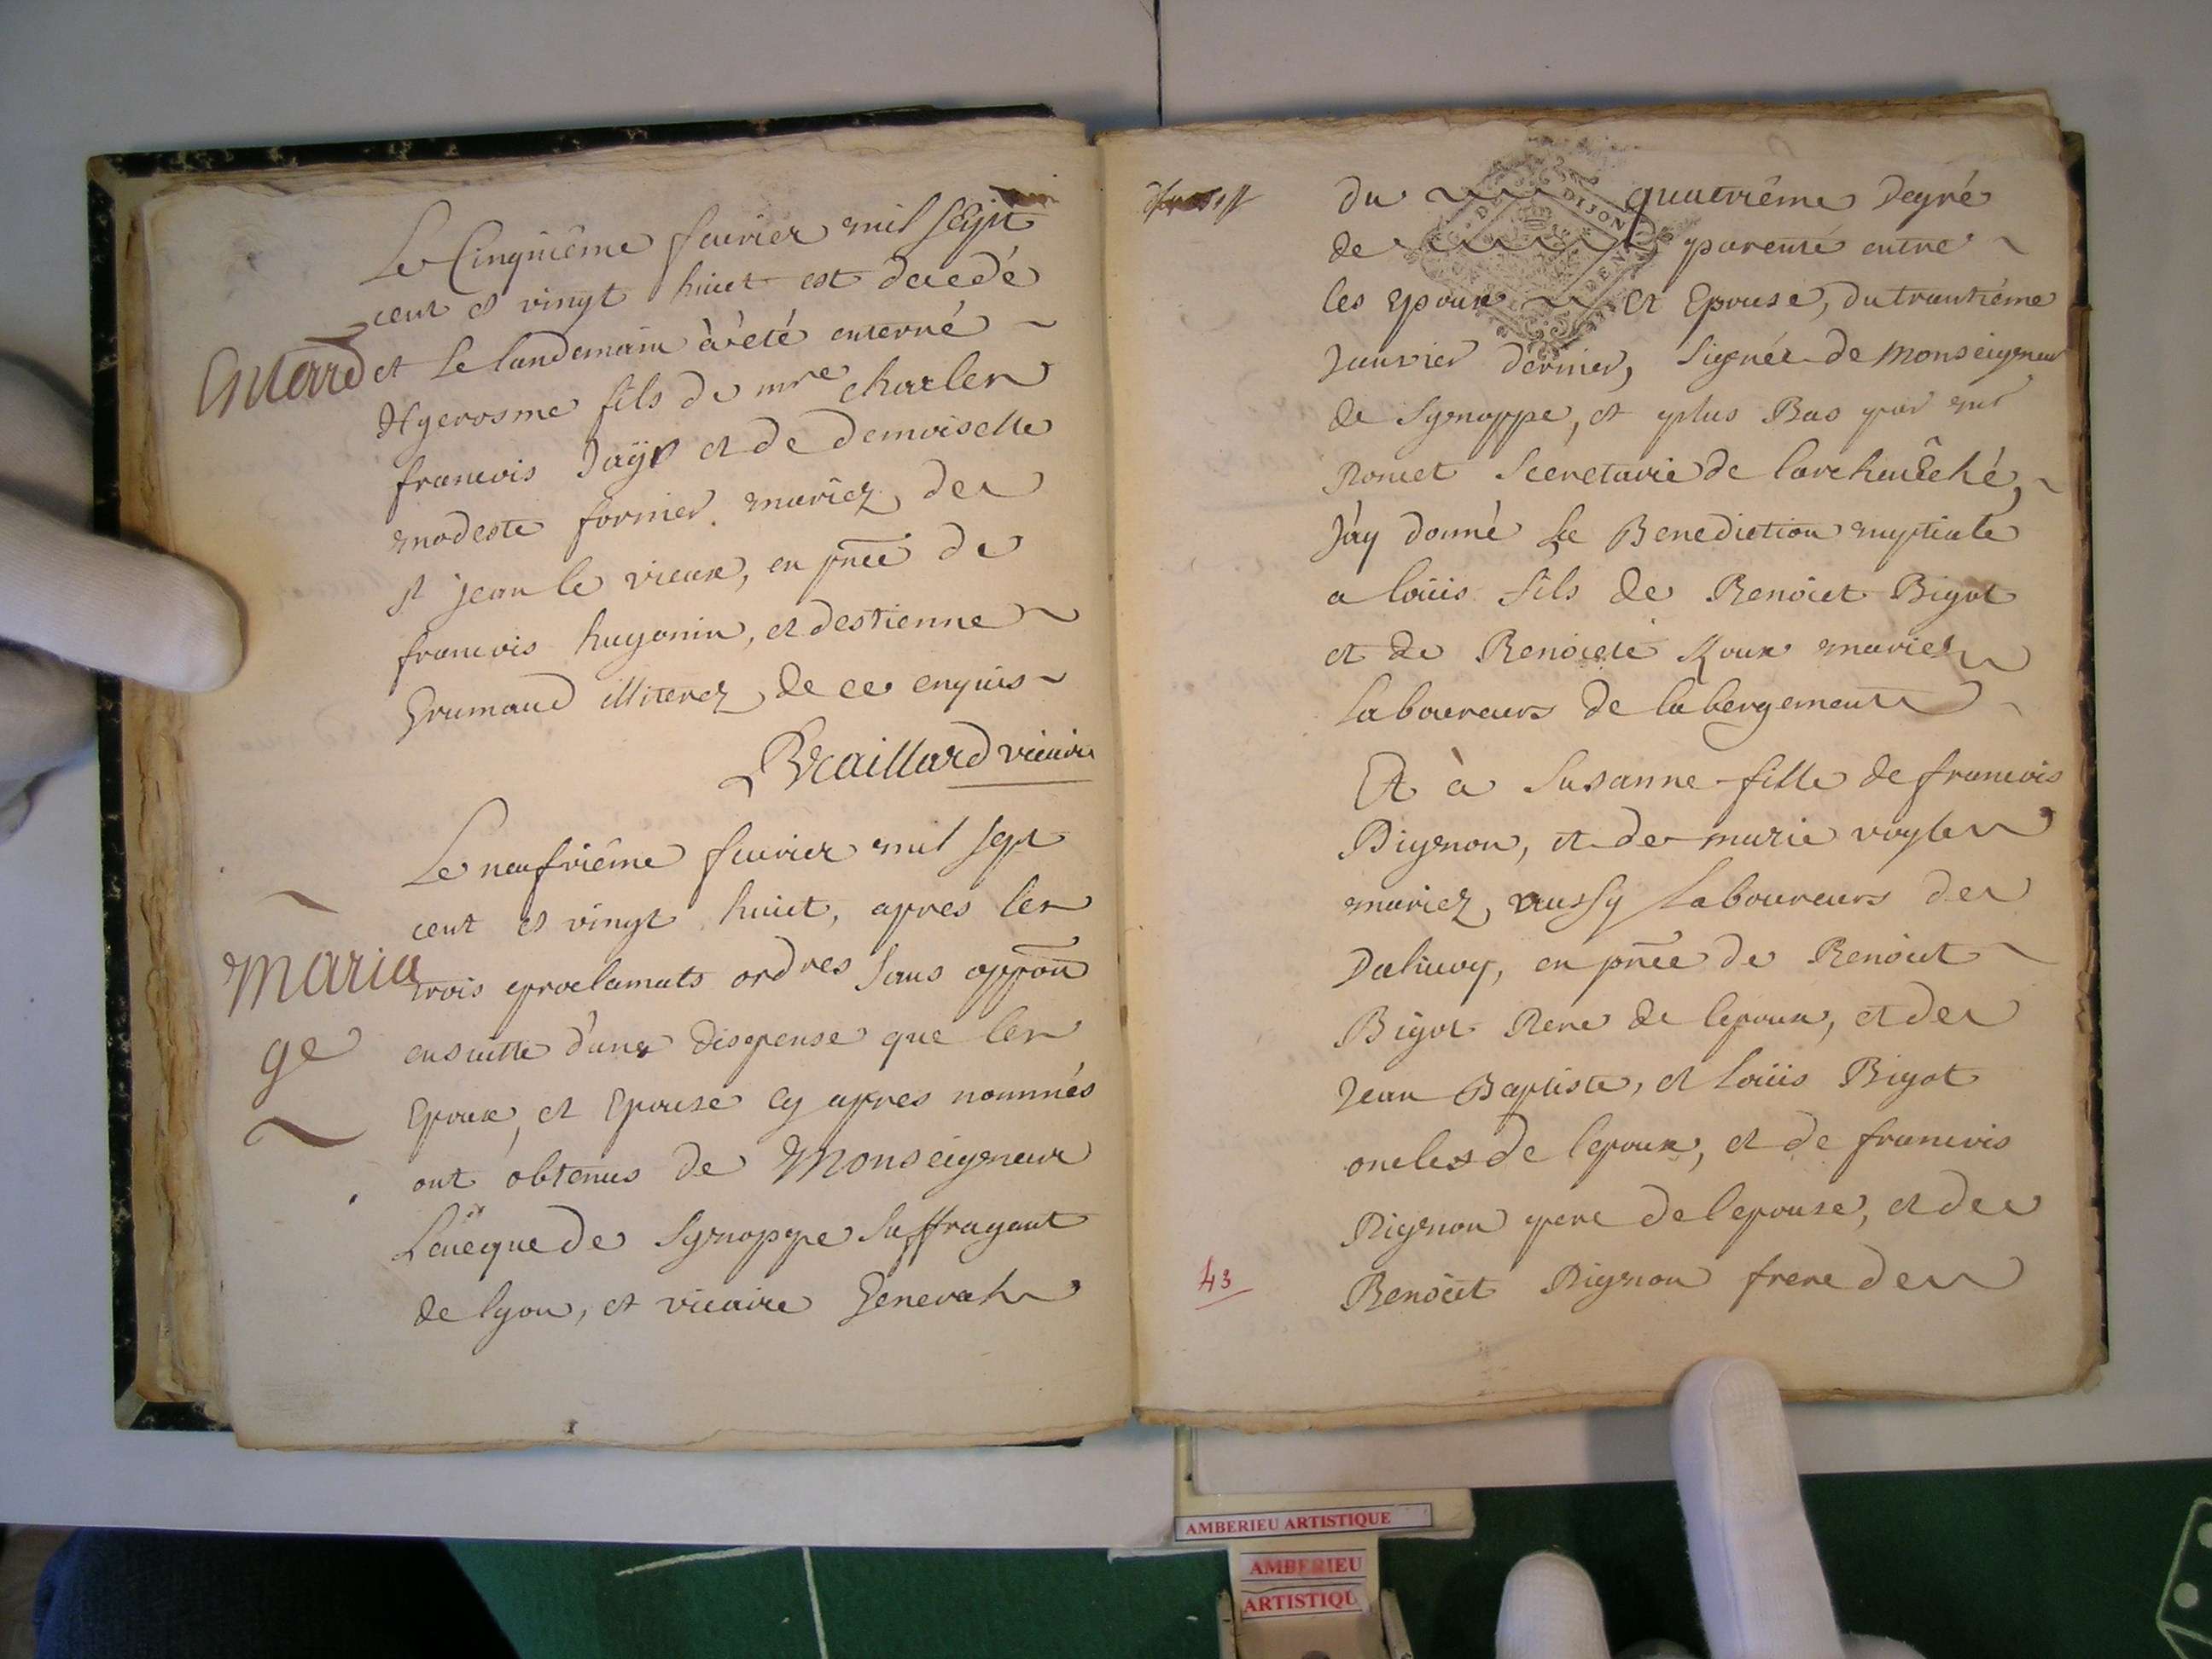 Le Cinquiême feurier mil sept
cent et vingt huict est decedé
Enterd
et le landemain à été enterré
Hyerosme fils de mre charles
francois Jayr et de demoiselle
modeste fornier mariez de
st jean le vieux, en pñce de
francois hugonin, et destienne
Grumaud illiterez de ce enquis
Braillard vicaire
Le neufviême feurier mil sept
cent et vingt huict, apres les
Maria
ge
trois proclamats ordres sans oppõn
ensuitte d'une dispense que les
Epoux, et Epouse cy apres nommés
ont obtenus de Monseigneur
Leueque de Synoppe suffragant
de lyon, et vicaire General
du quatriême degré
de parenté entre
les epoux et Epouse, du trantiéme
Januier dernier, signée de Monseigneur
de Synoppe, et plus Bas par mr
Romet Secretaire de larcheuêché,
J'ay donné la Benediction nuptiale
a loüis fils de Benoict Bigot
et de Benoicte Roux mariez
laboureurs de labergement
Et à Susanne fille de francois
Pignon, et de marie
mariez, aussy laboureurs de
en pñce de Benoict
Bigot Pere de lepoux, et de
Jean Baptiste, et loüis Bigot
oncles de lepoux, et de francois
Pignon pere de lepouse, et de
Benoict Pignon frere de
43
DE DIJON
AMBERIEU ARTISTIQUE
AMBERIEU
ARTISTIQU